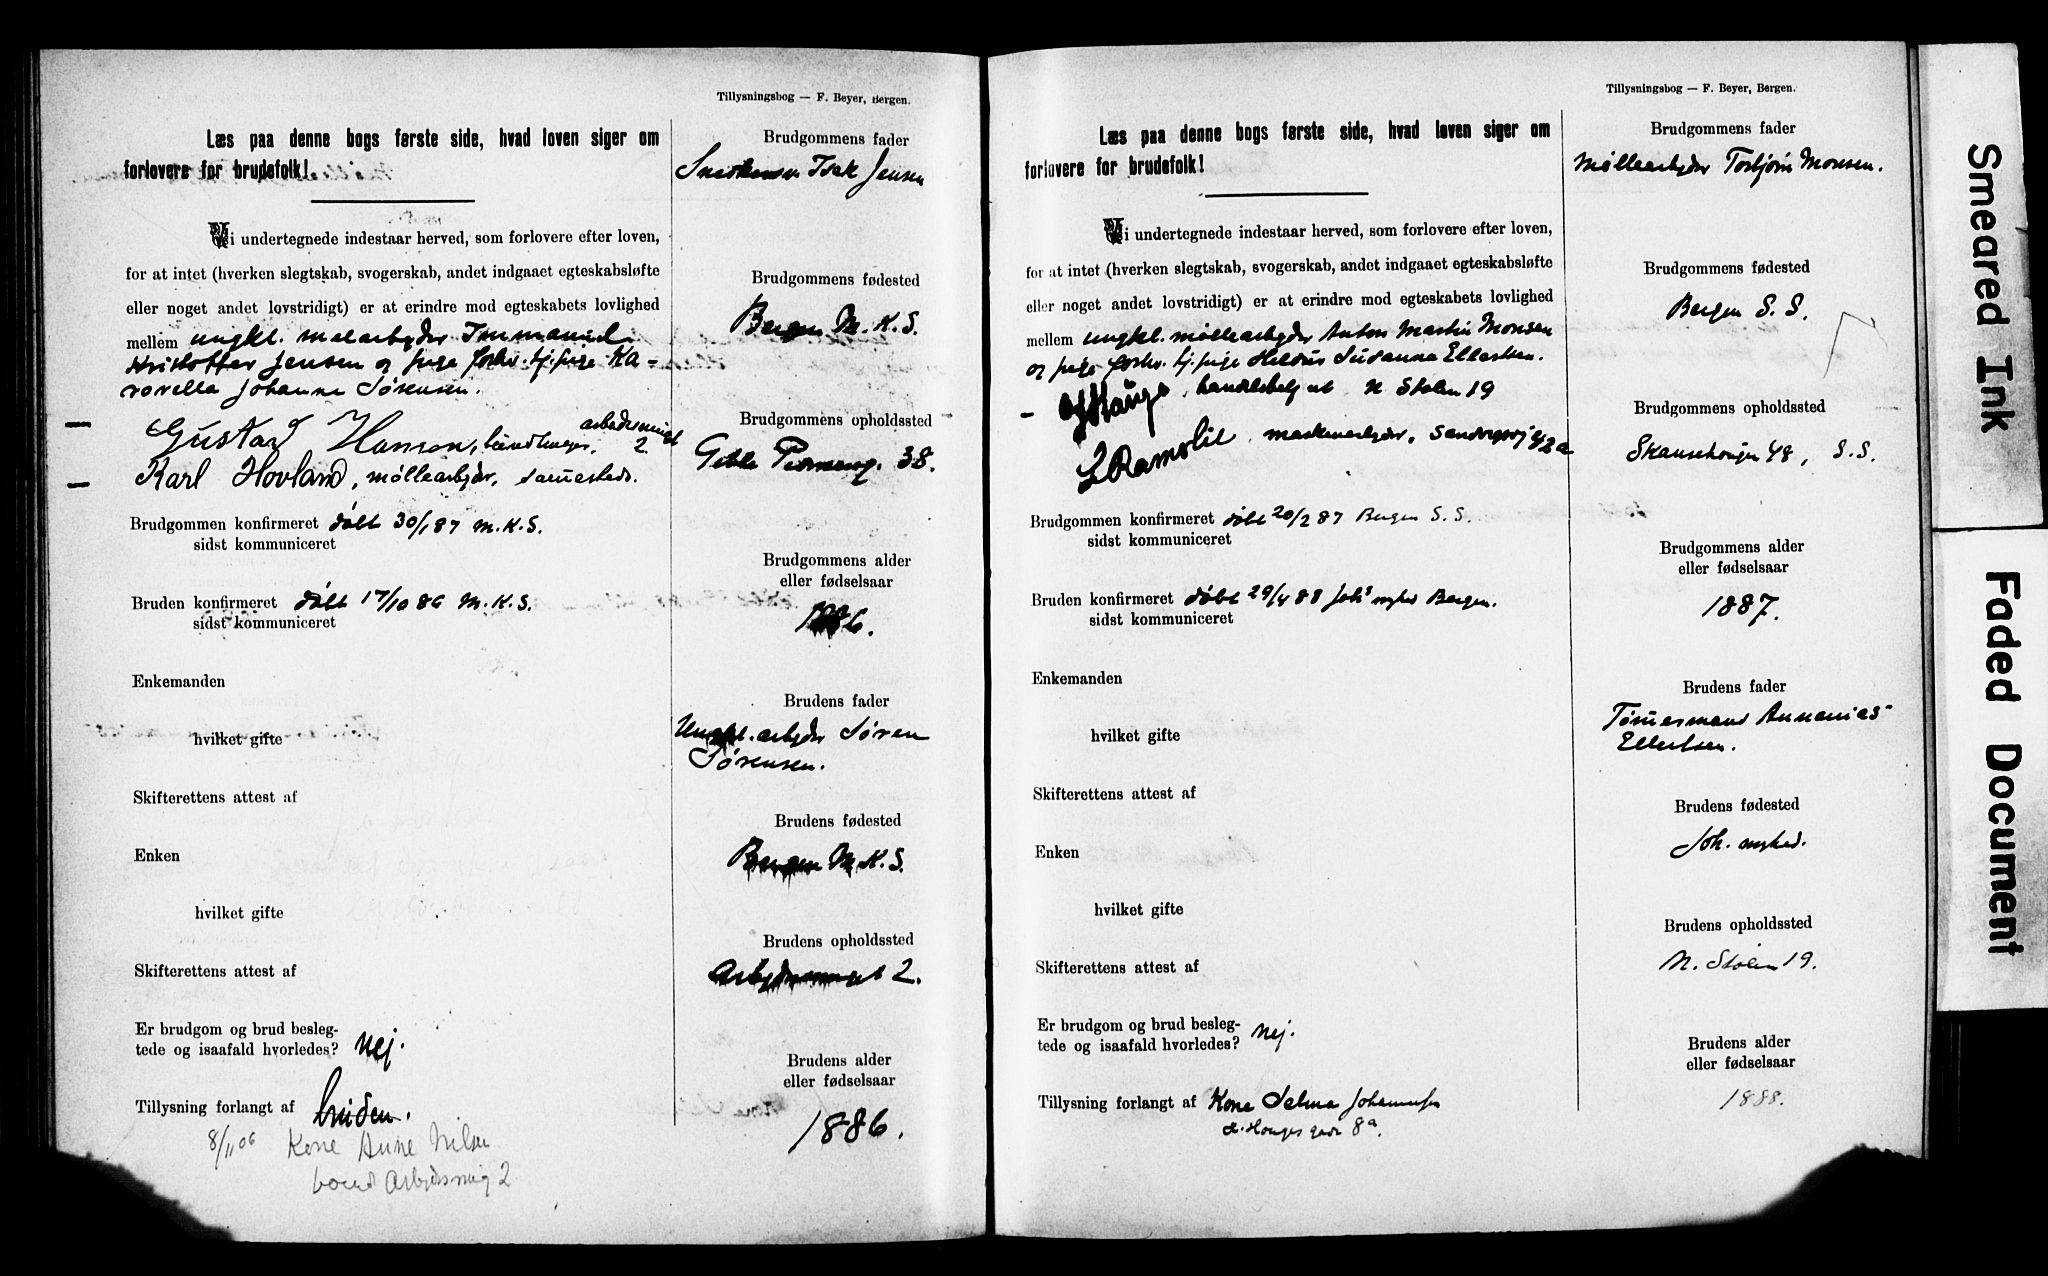 Tillysningsbog — F. Beyer, Bergen.
Læs paa denne bogs første side, hvad loven siger om
forlovere for brudefolk!
Vi undertegnede indestaar herved, som forlovere efter loven,
for at intet (hverken slegtskab, svogerskab, andet indgaaet egteskabsløfte
eller noget andet lovstridigt) er at erindre mod egteskabets lovlighed
mellem ungkl. Immanuel
Kristoffer Jensen og pige forhv. tj.pige Ka-
rorella Johanne Sørensen.
Gustav Hanson,
2
Karl Hovland, møllearbejder, sammesteds.
Brudgommen konfirmeret døbt 30/1 87 M.K.S.
sidst kommuniceret
Bruden konfirmeret døbt 17/10 86 M.K.S.
sidst kommuniceret
Enkemanden
hvilket gifte
Skifterettens attest af
Enken
hvilket gifte
Skifterettens attest af
Er brudgom og brud besleg-
tede og isaafald hvorledes? Nej.
Tillysning forlangt af bruden.
8/11 06 Kone Anne Nilsen
2
Brudgommens fader
Isak Jensen
Brudgommens fødested
Bergen M.K.S.
Brudgommens opholdssted
38.
Brudgommens alder
eller fødselsaar
1886.
Brudens fader
Ungkl. arbejder Søren
Sørensen.
Brudens fødested
Bergen M.K.S.
Brudens opholdssted
Arbejdersmuget 2.
Brudens alder
eller fødselsaar
1886.
Tillysningsbog — F. Beyer, Bergen.
Læs paa denne bogs første side, hvad loven siger om
forlovere for brudefolk!
Vi undertegnede indestaar herved, som forlovere efter loven,
for at intet (hverken slegtskab, svogerskab, andet indgaaet egteskabsløfte
eller noget andet lovstridigt) er at erindre mod egteskabets lovlighed
mellem ungkl. møllearbejder Anton Martin Monsen
og pige forhv. tj.pige Susanna Ellertsen.
N Stolen 19
Brudgommen konfirmeret døbt 20/2 87 Bergen S. S.
sidst kommuniceret
Bruden konfirmeret døbt 29/4 88 Joh's Bergen.
sidst kommuniceret
Enkemanden
hvilket gifte
Skifterettens attest af
Enken
hvilket gifte
Skifterettens attest af
Er brudgom og brud besleg-
tede og isaafald hvorledes? Nej.
Tillysning forlangt af Kone Selma Johannesen
8a.
Brudgommens fader
Møllearbejder Torbjørn Monsen.
Brudgommens fødested
Bergen S. S.
Brudgommens opholdssted
48, S.S.
Brudgommens alder
eller fødselsaar
1887.
Brudens fader
Tømmermand Annanias
Ellertsen.
Brudens fødested
Joh.
Brudens opholdssted
N. Stolen 19.
Brudens alder
eller fødselsaar
1888.
Smeared Ink
Faded Document